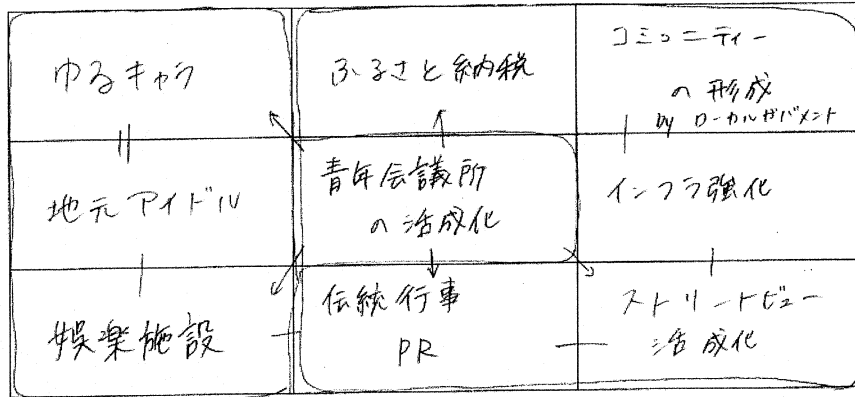 ゆるキャラ
ふるさと納税
コミュニティー
の形成
by ローカルガバメント
地元アイドル
青年会議所
の活成化
インフラ強化
娯楽施設
伝統行事
PR
ストリートビュー
活成化